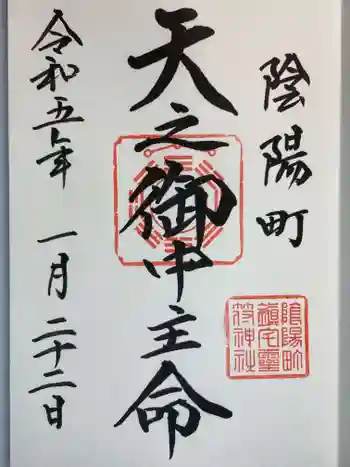 陰陽町
天之御中主命
令和五年 一月 二十二日
陰陽町
鎮宅霊
符神社